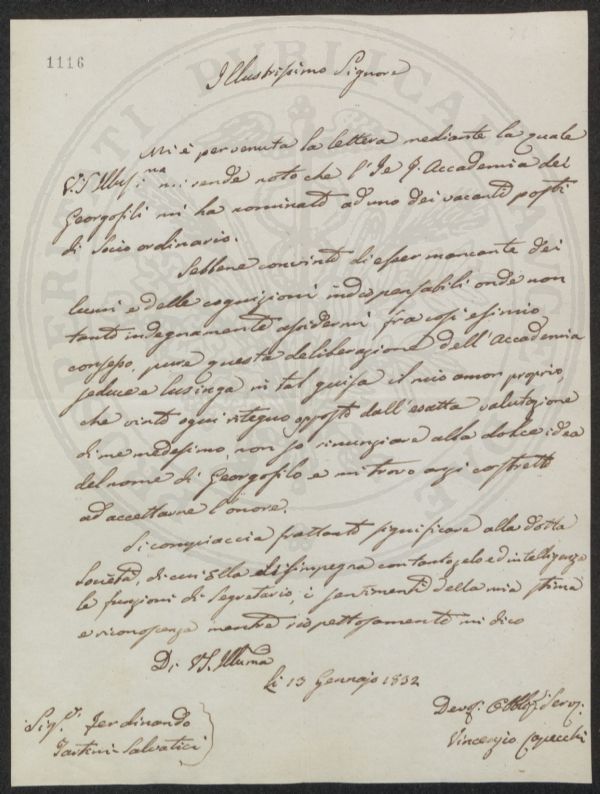 1116
Illustrissimo Signore
Mi è pervenuta la lettera mediante la quale
V.S. Illus.ma mi rende noto che l'I e R. Accademia dei
Georgofili mi ha nominato ad uno dei vacanti posti
di Socio ordinario.
Sebbene convinto di esser mancante dei
lumi e delle cognizioni indispensabili onde non
tanto indegnamente assidermi fra così esimio
consesso, pure questa deliberazione dell'Accademia
seduce e lusinga in tal guisa il mio amor proprio
che vinto ogni ritegno opposto dall'esatta valutazione
di me medesimo, non so rinunziare alla dolce idea
del nome di Georgofilo e mi trovo anzi costretto
ad accettarne l'onore.
Si compiaccia frattanto significare alla dotta
Società, di cui Ella disimpegna con tanto zelo ed intelligenza
le funzioni di Segretario, i sentimenti della mia stima
e riconoscenza mentre rispettosamente mi dico
Di VS. Illuma
Li 13 Gennajo 1832
Devo. Obblo. Servo.
Vincenzio Capecchi
Sig.r Ferdinando
Tartini-Salvatici
PROSPERITATI PUBLICAE